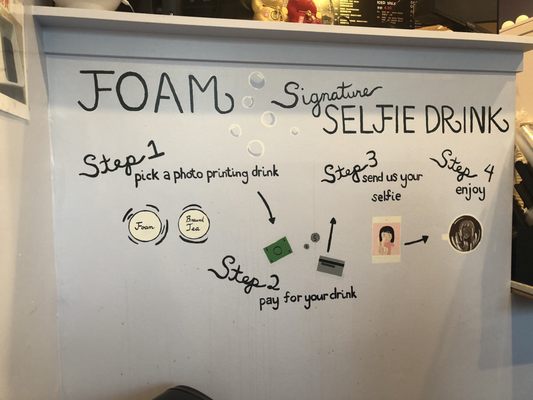 FOAM
Signature
SELFIE DRINK
Step 1
pick a photo printing drink
Foam
Brewed
Tea
Step 2
pay for your drink
Step 3
send us your
selfie
Step 4
enjoy